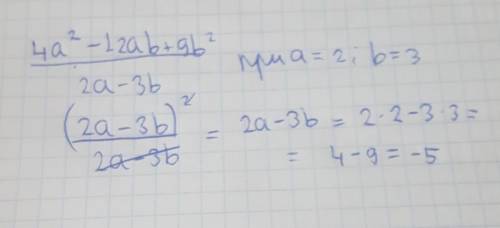 4a² - 12ab + 9b²
2a - 3b
при a = 2; b = 3
(2a - 3b)²
2a - 3b
= 2a - 3b = 2 · 2 - 3 · 3 =
= 4 - 9 = -5